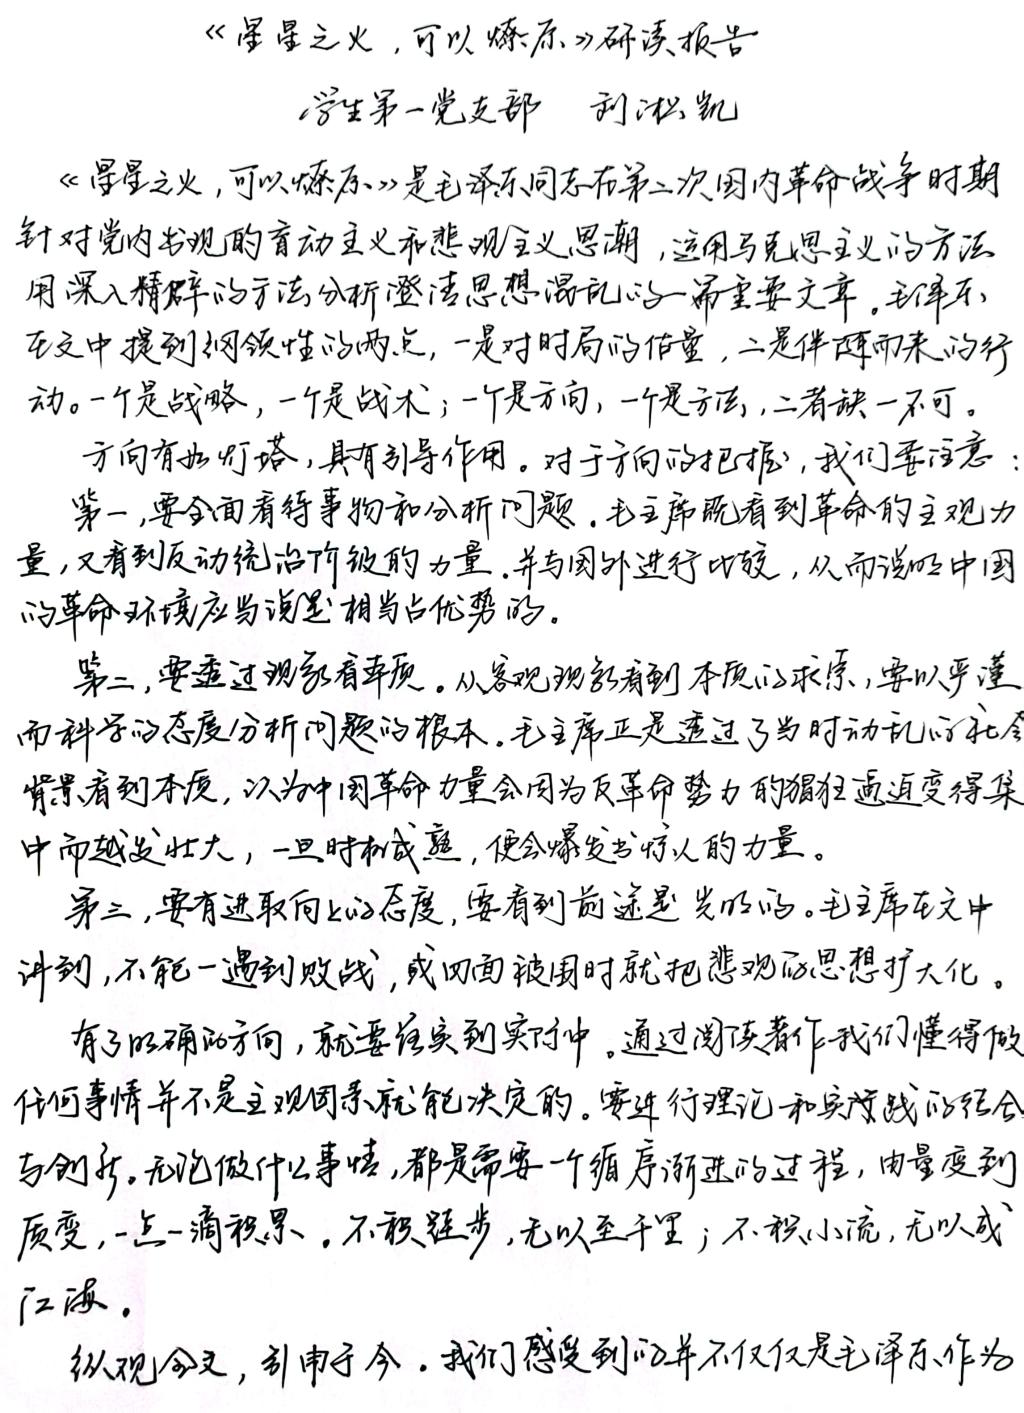 《星星之火，可以燎原》研读报告
学生第一党支部 刘淞凯
《星星之火，可以燎原》是毛泽东同志在第二次国内革命战争时期
针对党内出现的盲动主义和悲观主义思潮，运用马克思主义的方法
用深入精辟的方法分析澄清思想混乱的一篇重要文章。毛泽东
在文中提到纲领性的两点，一是对时局的估量，二是伴随而来的行
动。一个是战略，一个是战术；一个是方向，一个是方法，二者缺一不可。
方向有如灯塔，具有引导作用。对于方向的把握，我们要注意：
第一，要全面看待事物和分析问题。毛主席既看到革命的主观力
量，又看到反动统治阶级的力量。并与国外进行比较，从而说明中国
的革命环境应当说是相当占优势的。
第二，要透过现象看本质。从客观现象看到本质的求索，要以严谨
而科学的态度分析问题的根本。毛主席正是透过了当时动乱的社会
背景看到本质，认为中国革命力量会因为反革命势力的猖狂逼迫变得集
中而越发壮大，一旦时机成熟，便会爆发出惊人的力量。
第三，要有进取向上的态度，要看到前途是光明的。毛主席在文中
讲到，不能一遇到败战，或四面被围时就把悲观的思想扩大化。
有了明确的方向，就要落实到实际中。通过阅读著作我们懂得做
任何事情并不是主观因素就能决定的。要进行理论和实践的结合
与创新。无论做什么事情，都是需要一个循序渐进的过程，由量变到
质变，一点一滴积累。不积跬步，无以至千里；不积小流，无以成
江海。
纵观全文，引申于今。我们感受到的并不仅仅是毛泽东作为